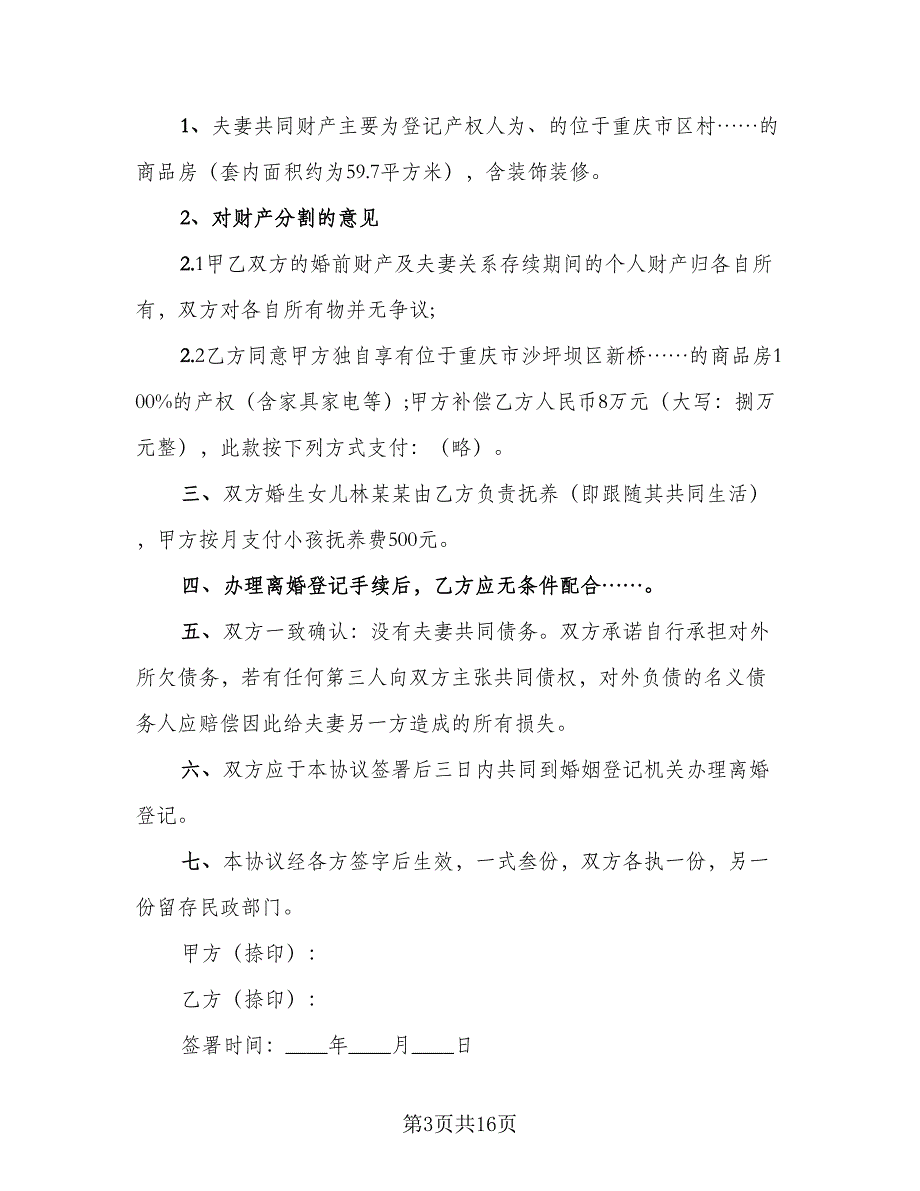 1、夫妻共同财产主要为登记产权人为、的位于重庆市区村……的
商品房（套内面积约为59.7平方米），含装饰装修。
2、对财产分割的意见
2.1甲乙双方的婚前财产及夫妻关系存续期间的个人财产归各自所
有，双方对各自所有物并无争议;
2.2乙方同意甲方独自享有位于重庆市沙坪坝区新桥……的商品房1
00%的产权（含家具家电等）;甲方补偿乙方人民币8万元（大写：捌万
元整），此款按下列方式支付：（略）。
三、双方婚生女儿林某某由乙方负责抚养（即跟随其共同生活）
，甲方按月支付小孩抚养费500元。
四、办理离婚登记手续后，乙方应无条件配合……。
五、双方一致确认：没有夫妻共同债务。双方承诺自行承担对外
所欠债务，若有任何第三人向双方主张共同债权，对外负债的名义债
务人应赔偿因此给夫妻另一方造成的所有损失。
六、双方应于本协议签署后三日内共同到婚姻登记机关办理离婚
登记。
七、本协议经各方签字后生效，一式叁份，双方各执一份，另一
份留存民政部门。
甲方（捺印）：
乙方（捺印）：
签署时间：____年____月____日
第3页共16页